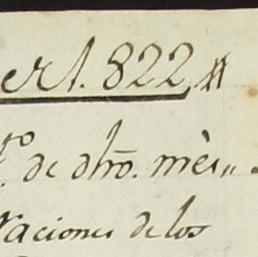 erl. 822,,
to. de dhõ. mès,,
naciones de los